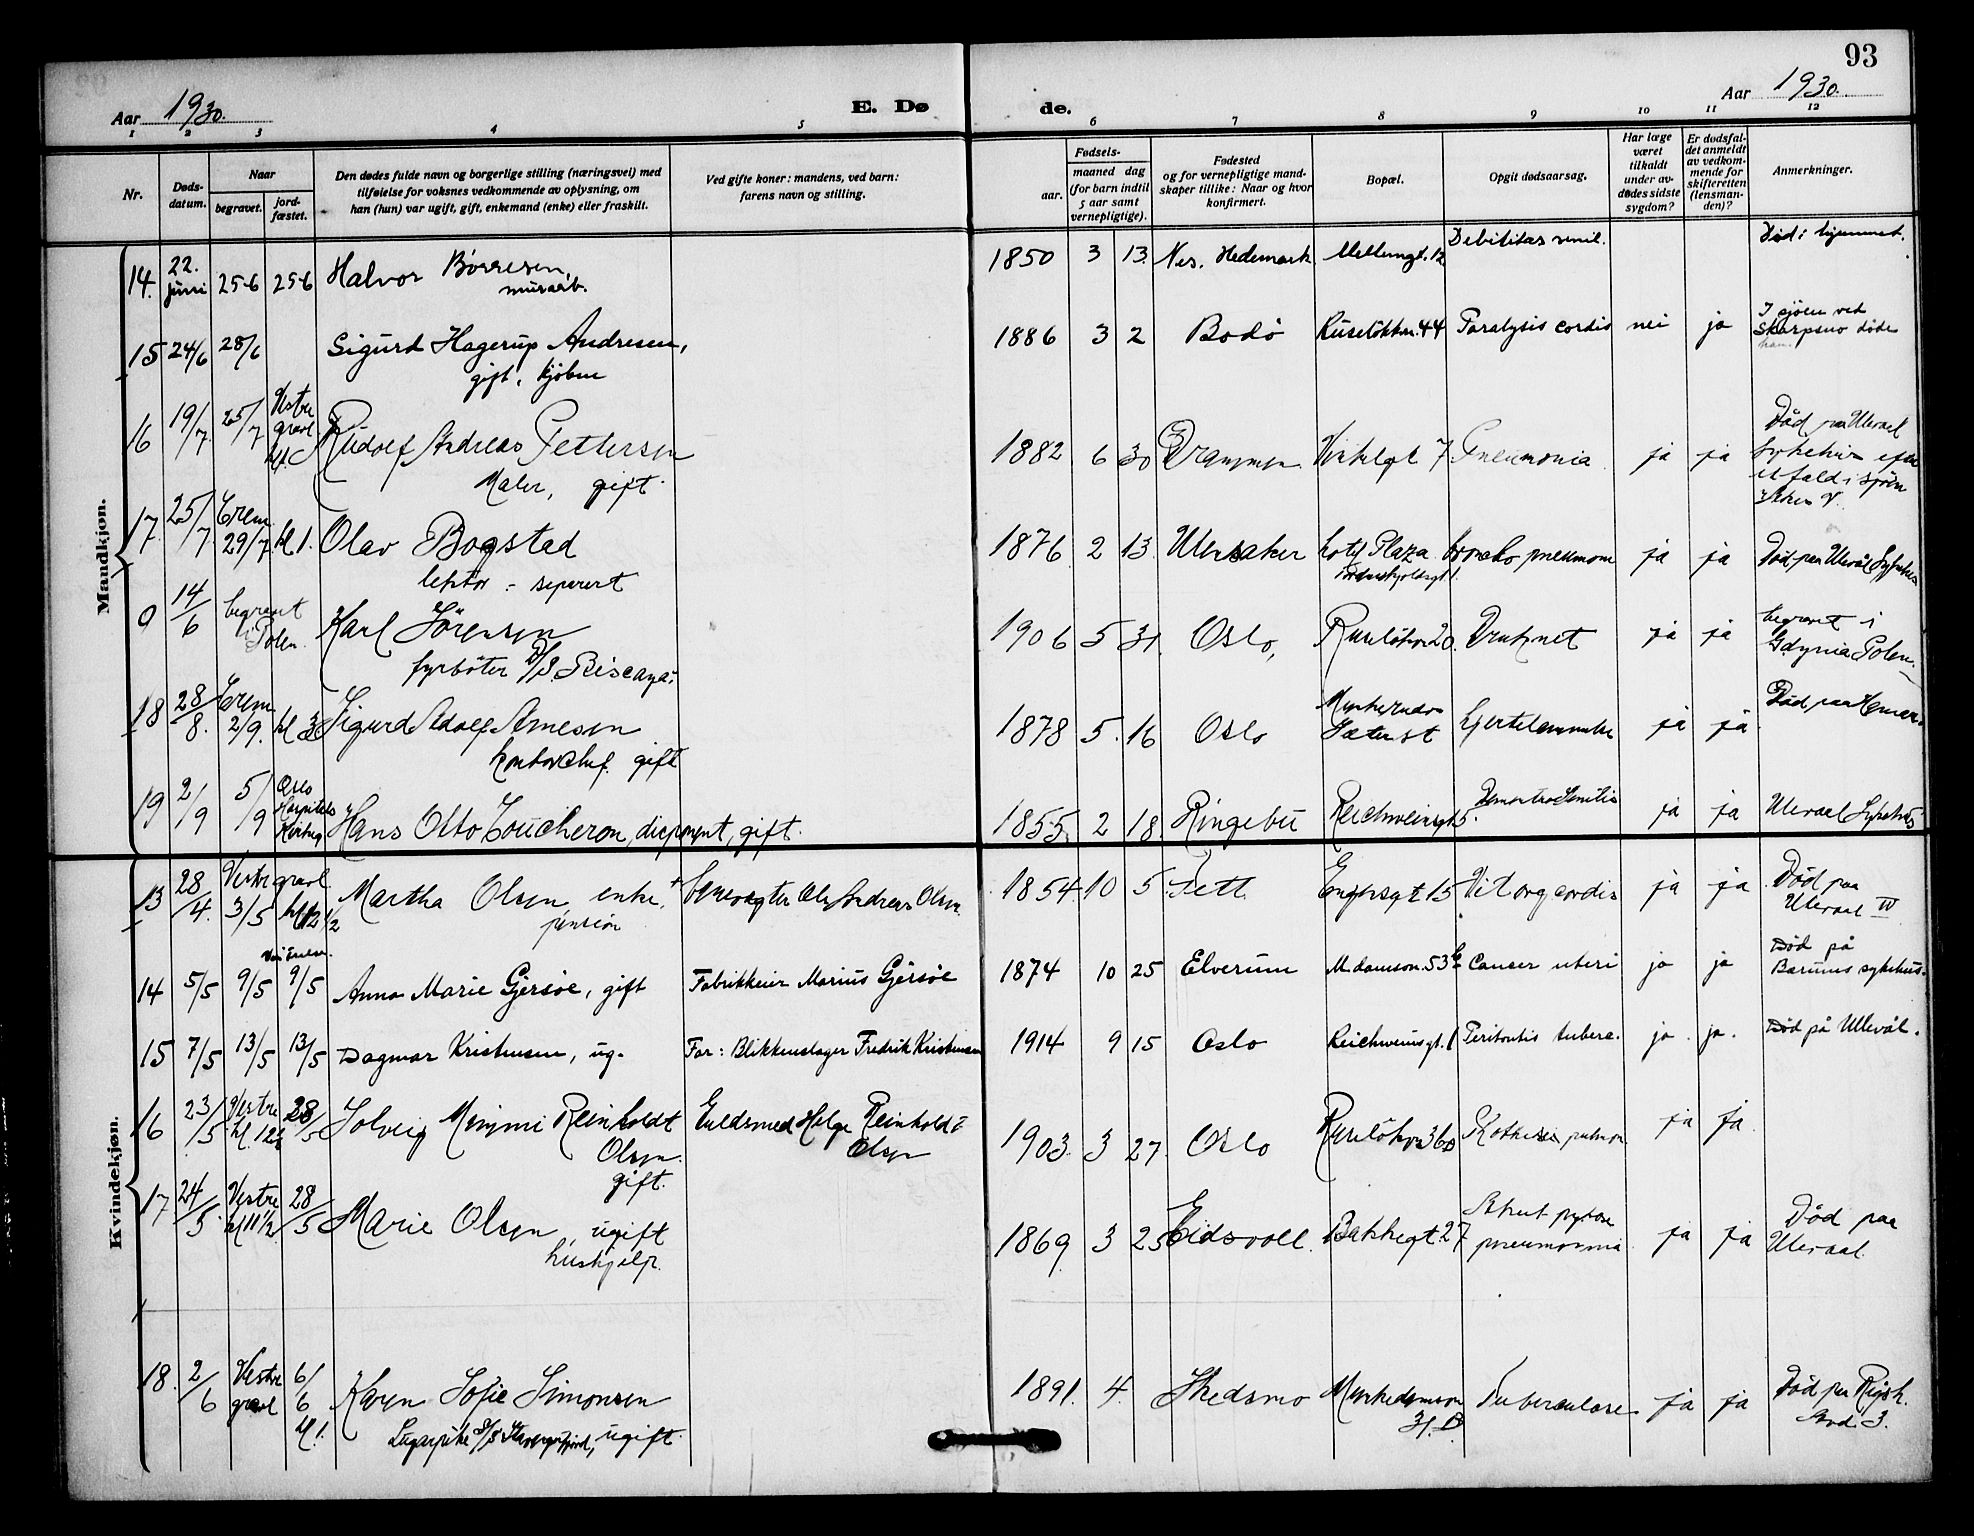 93
Aar 1930.
E. Døde.
Aar 1930.
1 2 3 4 5 6 7 8 9 10 11 12
Nr.
Døds-
datum.
Naar
begravet.
jord-
fæstet.
Den dødes fulde navn og borgerlige stilling (næringsvei) med
tilføielse for voksnes vedkommende av oplysning, om
han (hun) var ugift, gift, enkemand (enke) eller fraskilt.
Ved gifte koner: mandens, ved barn:
farens navn og stilling.
Fødsels-
aar.
maaned dag
(for barn indtil
5 aar samt
vernepligtige).
Fødested
og for vernepligtige mand-
skaper tillike: Naar og hvor
konfirmert.
Bopæl.
Opgit dødsaarsag.
Har læge
været
tilkaldt
under av-
dødes sidste
sygdom?
Er dødsfal-
det anmeldt
av vedkom-
mende for
skifteretten
(lensman-
den)?
Anmerkninger.
Mandkjøn.
14. 22. juni 25-6 25-6 Halvor Børresen, murarb. 1850 3 13 Nes. Hedemark Mellumgt. 12 Debilitas senil. Død i hjemmet.
15 24/6 28/6 Sigurd Hagerup Andresen, gift, kjøbm 1886 3 2 Bodö Ruseløkkv. 44 Paralysis cordis nei ja I sjöen ved Skarpsno døde han.
16 19/7 25/7 Vestre gravl kl. Rudolf Andreas Pettersen Maler, gift 1882 6 30 Drammen 7 Pneumonia ja ja Död paa Ulevael Sykehus efter et fald i sjöen
17 25/7 Crem. 29/7 kl 1. Olav Bogstad lektor - separert 1876 2 13 Ullensaker Hotel Plaza broncho pneumoni ja ja Död paa Ulevål Sykehus
0 14/6 begravet i Polen Karl Sörensen fyrböter D/S. Biscaya. 1906 5 31 Oslo, Ruselökv 20. Druknet ja ja begravet i Gdynia Polen.
18 28/8. Crem 2/9. kl 3 Sigurd Adolf Arnesen kontorchef. gift 1878 5. 16 Oslo Hjertelammelse ja ja Död paa
19 2/9 5/9 Oslo Hospitals Kirke Hans Otto Toucheron, disponent, gift. 1855 2 18 Ringebu Reichweinsgt 5. Dementia Senilis ja ja Ulevael Sykehus
Kvindekjøn.
13 28/4. Vestre gravl 3/5 kl 12 1/2 Martha Olsen enke. pension Ole Andreas Olsen 1854 10 5 Fett Engensgt 15 Vit org cordis ja ja Död paa Ulevael IV
14 5/5 9/5 9/5 Anna Marie Gjersöe, gift Fabrikkeier Marius Gjersöe 1874 10 25 Elverum M. damssn. 53 b Cancer uteri ja ja Död på Bærums sykehus.
15 7/5 13/5 13/5 Dagmar Kristensen, ug. Far: Blikkenslager Fredrik Kristensen 1914 9 15 Oslo Reichweinsgt. 1 Peritonitis tuberc. ja. ja. Död på Ullevål.
16 23/5 Vestre kl. 12 1/2 28/5 Solveig Mimmi Reinholdt Olsen. gift. Guldsmed Helge Reinholdt Olsen 1903. 3 27. Oslo Ruselökv 36 b pulmon ja ja.
17 24/5. Vestre kl 11 1/2 28/5 Marie Olsen ugift hushjelp. 1869 3 25 Eidsvoll. Bakkegt. 27 pneumonia ja ja Död paa Ulevaal.
18. 2/6 Vestre gravl 6/6 kl 1. Karen Sofie Simonsen Lugarpike S/S Stavangerfjord, ugift. 1891. 4. Skedsmo Munkedamsvn 31. B Tuberculose ja ja Död paa Rigsh. Avd. 3.